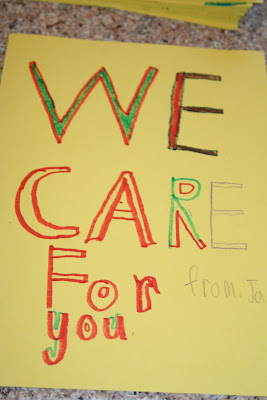 WE
CARE
For
you.
from: Ja